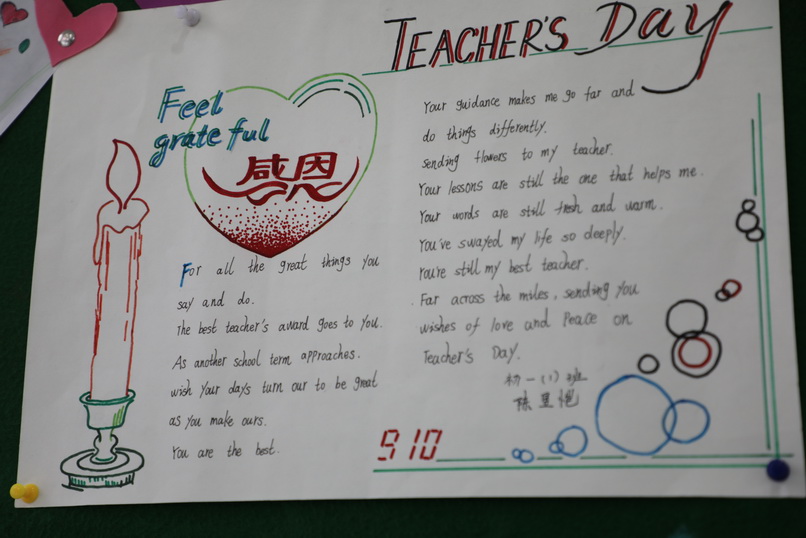 TEACHER'S Day
Feel
grateful
感恩
For all the great things you
say and do.
The best teacher's award goes to you.
As another school term approaches.
wish your days turn our to be great
as you make ours.
You are the best.
Your guidance makes me go far and
do things differently.
sending flowers to my teacher.
Your lessons are still the one that helps me.
Your words are still fresh and warm.
You've swayed my life so deeply.
You're still my best teacher.
Far across the miles, sending you
wishes of love and Peace on
Teacher's Day.
初一(1)班
陈
910